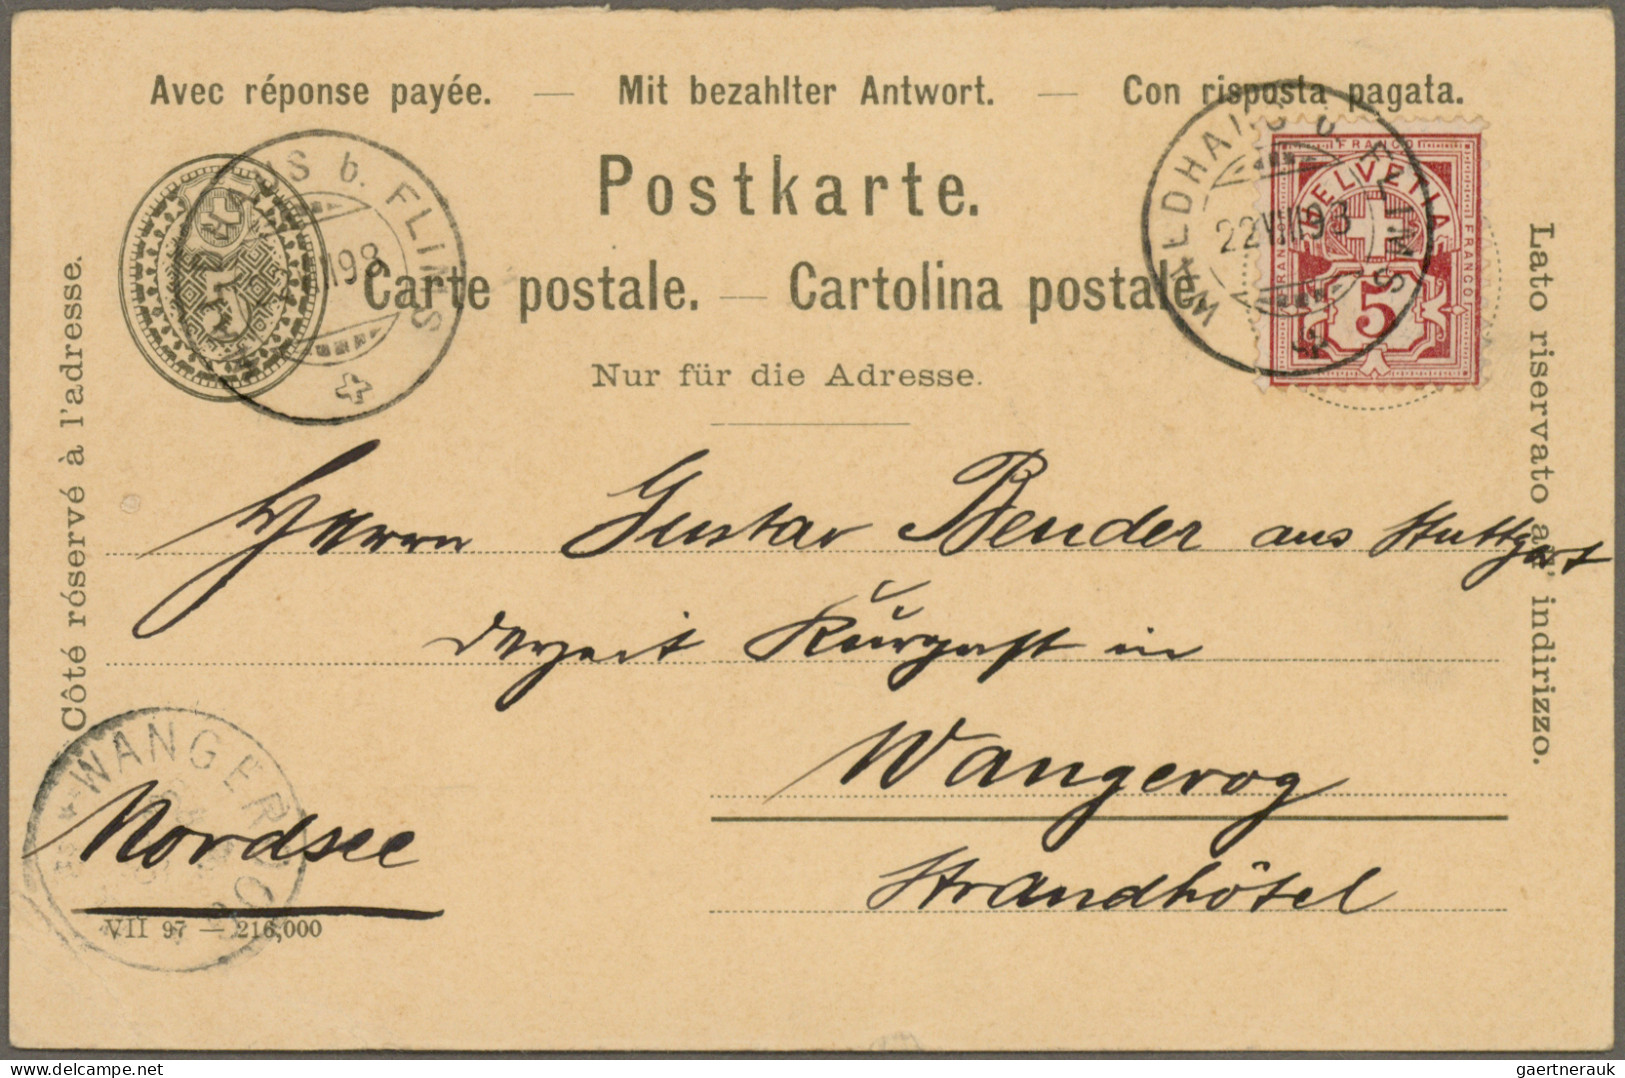 Avec réponse payée. — Mit bezahlter Antwort. — Con risposta pagata.
Postkarte.
Carte postale. — Cartolina postale.
Nur für die Adresse.
Côté réservé à l'adresse.
Lato riservato all' indirizzo.
AUS b. FLIMS
98
WALDHAUS b. FLIMS
22 VIII 98
FRANCO
HELVETIA
FRANCO
FRANCO
5
5
Herrn Gustav Bender aus Stuttgart
derzeit Kurgast in
Wangerog
Strandhôtel
Nordsee
WANGEROOG
VII 97 — 216,000
gaertnerauk